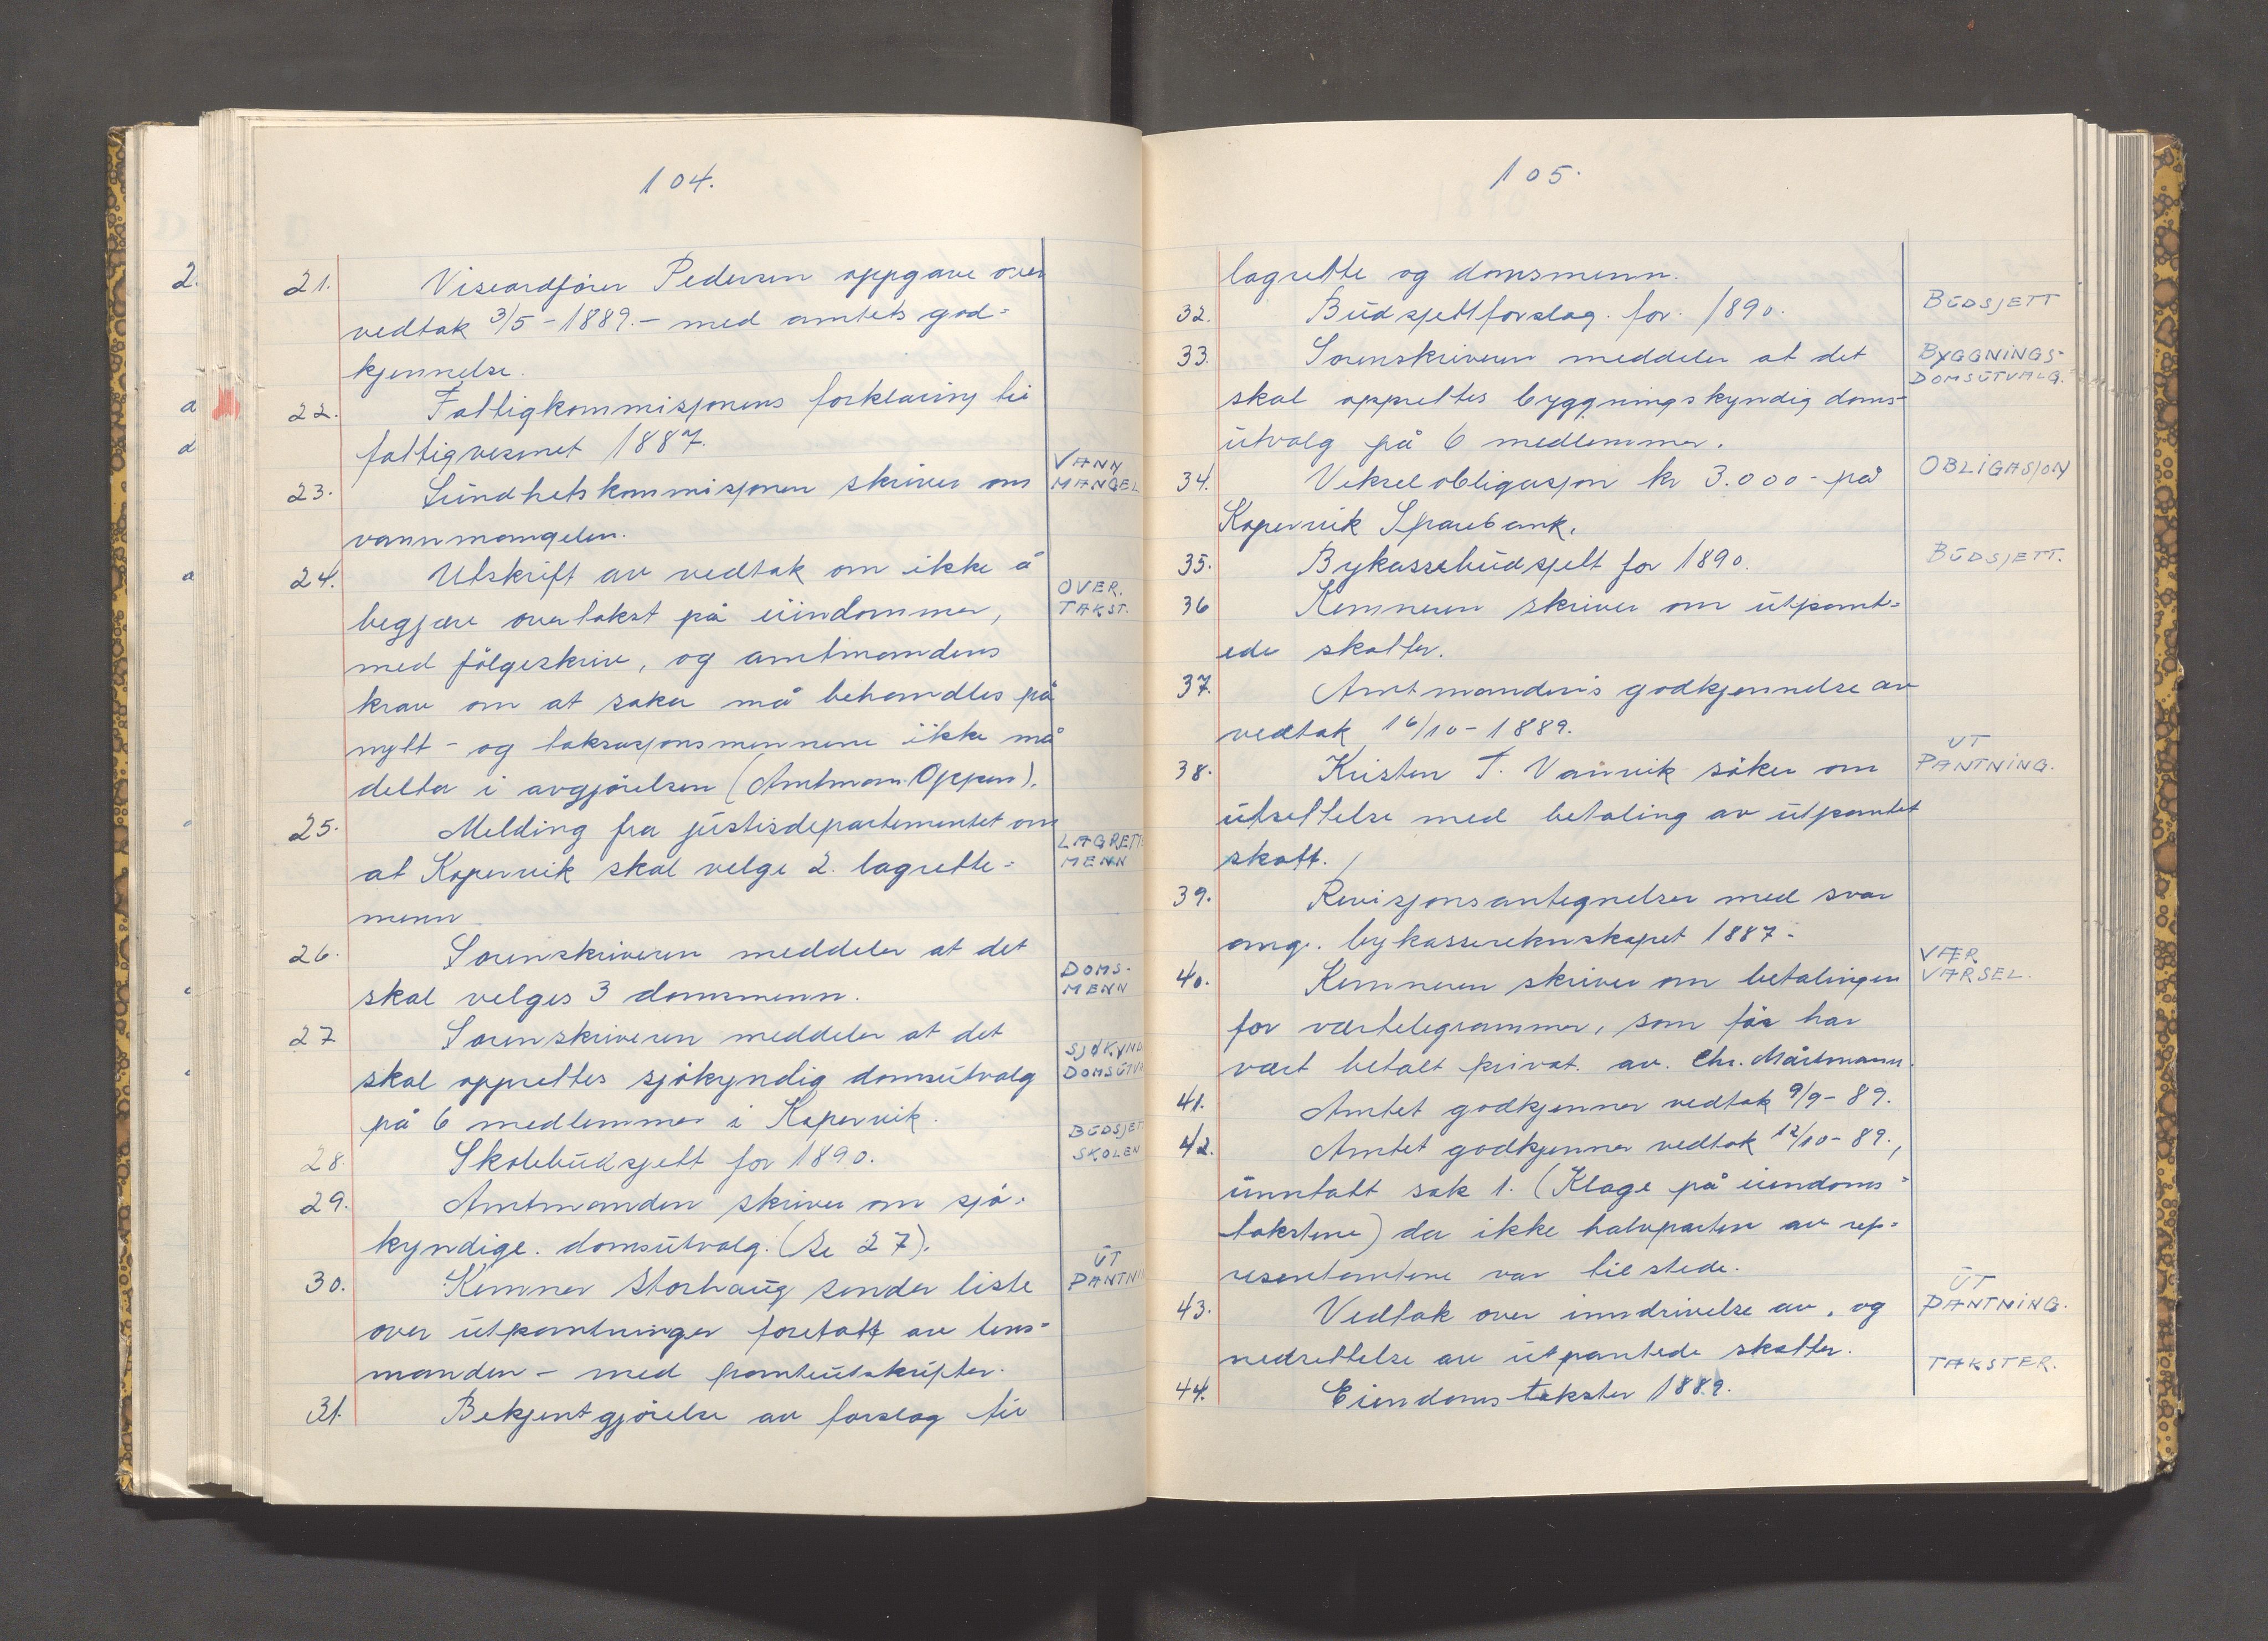 104.
21. Viseordfører Pedersen oppgave over
vedtak 3/5-1889.- med amtets god=
kjennelse.
22. Fattigkommisjonens forklaring til
fattigvesenet 1887.
23. Sundhetskommisjonen skriver om
VANN
MANGEL
vannmangelen.
24. Utskrift av vedtak om ikke å
OVER.
TAKST.
begjære overtakst på eiendommer,
med følgeskriv, og amtmandens
krav om at saken må behandles på
nytt - og taksasjonsmennene ikke må
delta i avgjørelsen (Amtmann Oppen).
25. Melding fra justisdepartementet om
LAGRETT
MENN
at Kopervik skal velge 2. lagrette=
menn
26. Sorenskriveren meddeler at det
DOMS-
MENN
skal velges 3 domsmenn.
27. Sorenskriveren meddeler at det
SJØKYND
DOMSUTV
skal opprettes sjøkyndig domsutvalg
på 6 medlemmer i Kopervik.
28. Skolebudsjett for 1890.
BUDSJET
SKOLEN
29. Amtmanden skriver om sjø-
kyndige. domsutvalg. (Se 27).
30. Kemner Storhaug sender liste
UT
PANTNI
over utpantninger foretatt av lens=
manden - med panteutskrifter.
31. Bekjentgjørelse av forslag til
105.
lagrette og domsmenn.
32. Budsjettforslag. for. 1890.
BUDSJETT
33. Sorenskriveren meddeler at det
BYGGNINGS-
DOMSUTVALG.
skal opprettes byggningskyndig doms-
utvalg på 6 medlemmer.
34. Vekselobligasjon kr 3.000- på
OBLIGASJON
Kopervik Sparebank.
35. Bykassebudsjett for 1890.
BUDSJETT.
36 Kemneren skriver om utpant=
ede skatter.
37. Amtmandens godkjennelse av
vedtak 16/10-1889.
38. Kristen T. Vannvik søker om
UT
PANTNING.
utsettelse med betaling av utpantet
skatt.
39. Revisjonsantegnelser med svar
ang. bykasserekneskapet 1887-
40. Kemneren skriver om betalingen
VÆR
VARSEL.
for værtelegrammer, som før har
vært betalt privat. av. Chr. Mårtmann.
41. Amtet godkjenner vedtak 9/9-89.
42. Amtet godkjenner vedtak 12/10-89.,
unntatt sak 1. (Klage på eiendoms=
takstene) da ikke halvparten av rep=
resentantene var tilstede.
43. Vedtak over inndrivelse av, og
UT
PANTNING.
nedsettelse av utpantede skatter.
44. Eiendomstakster 1889.
TAKSTER.